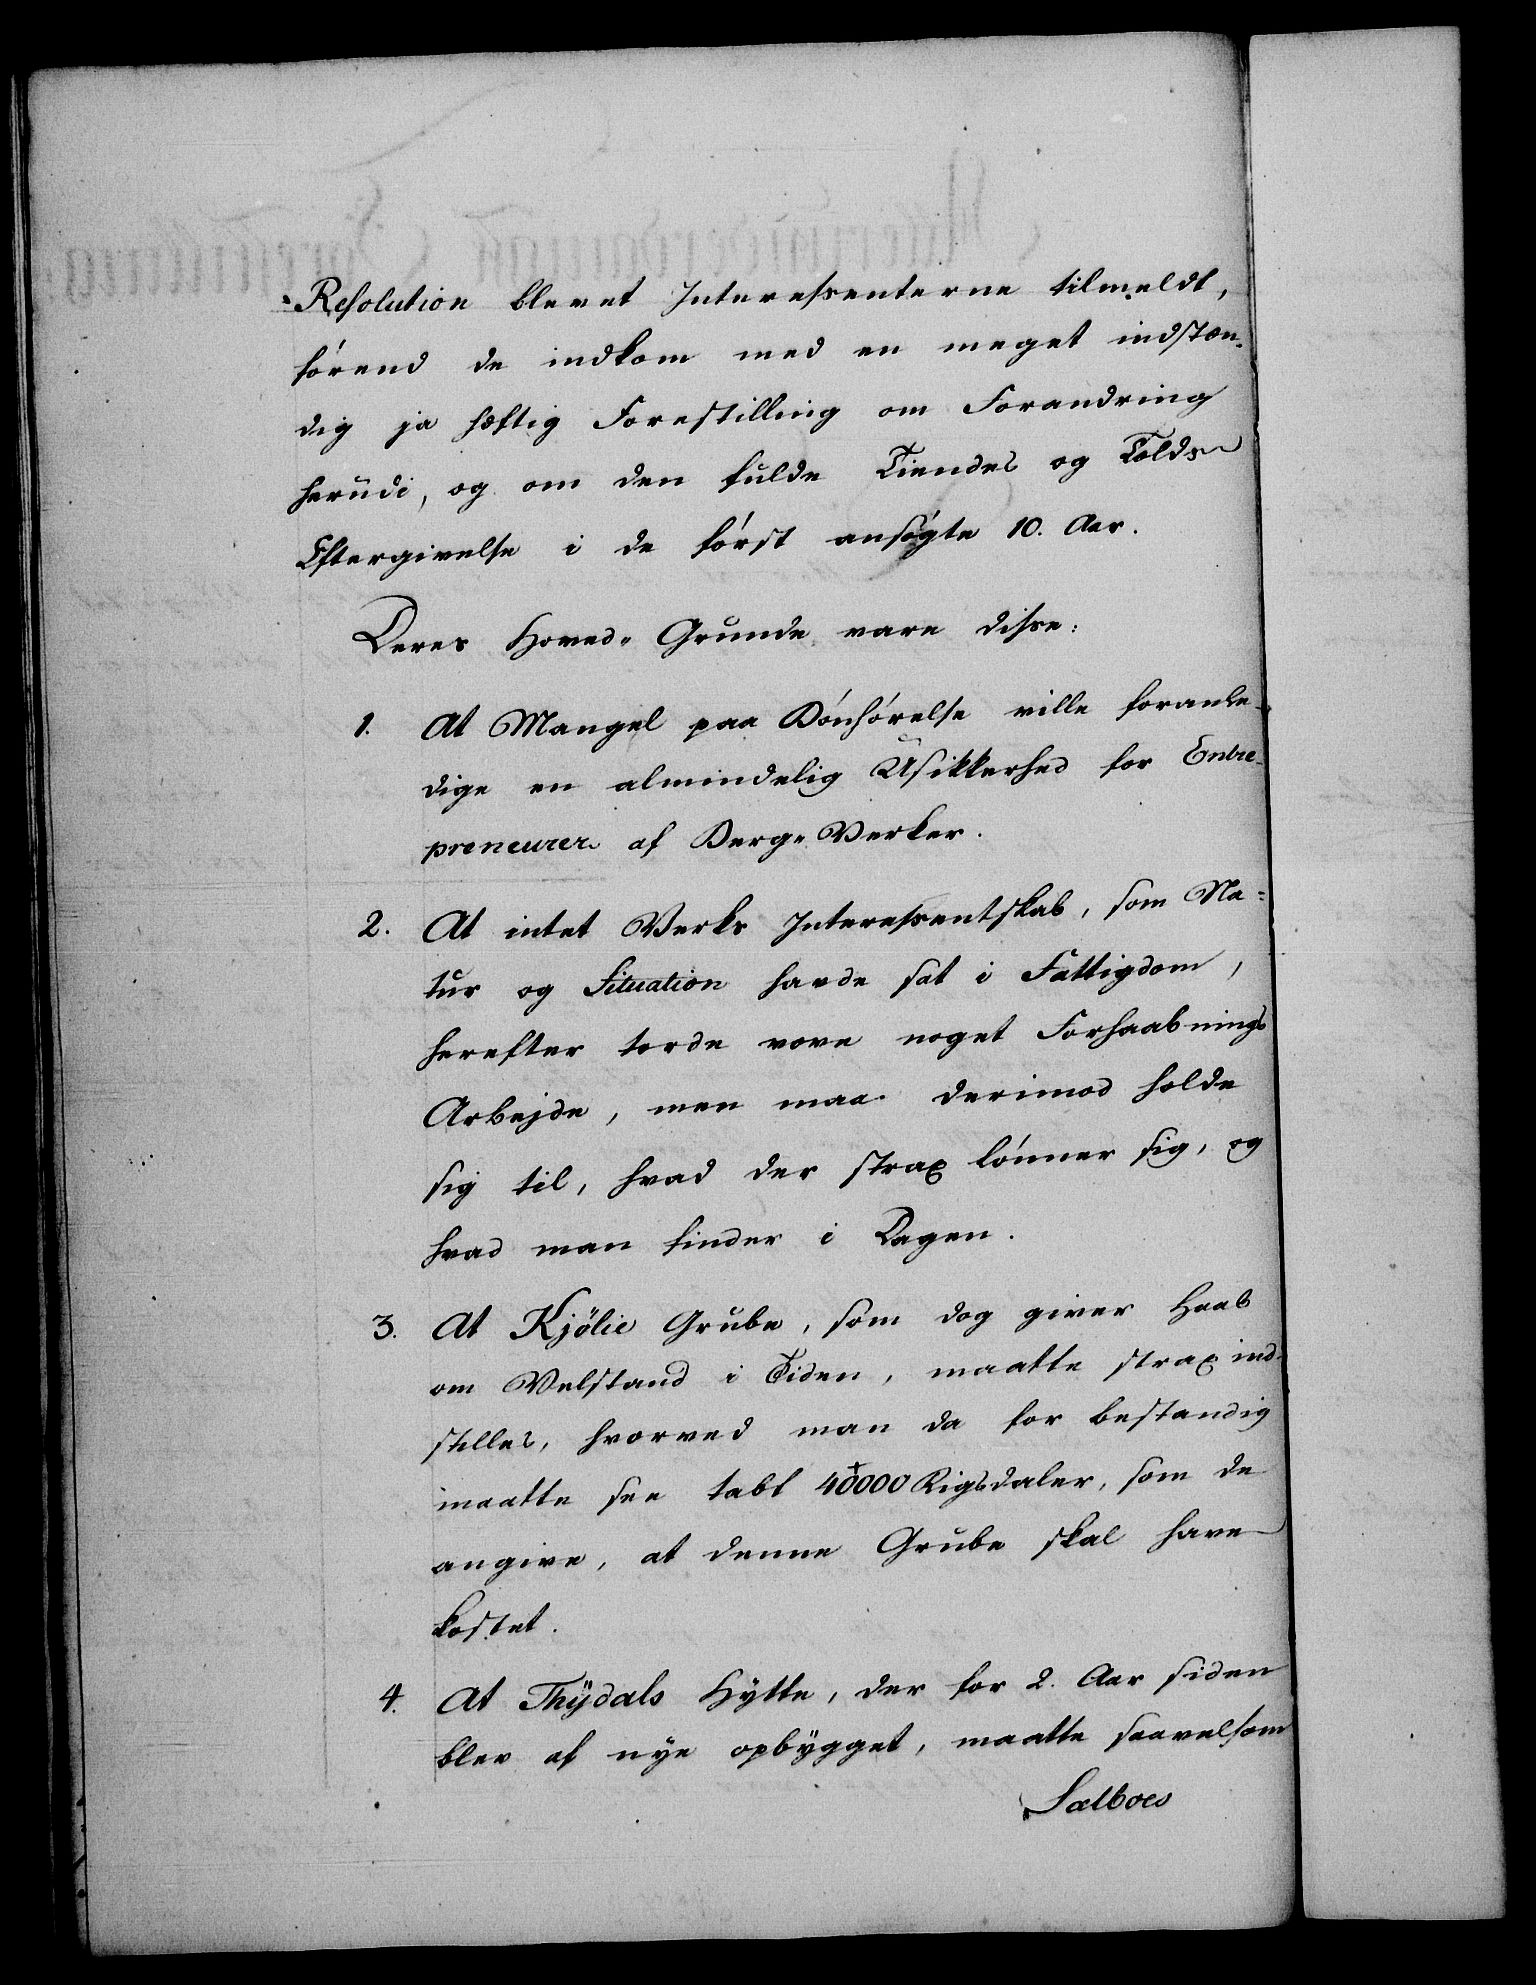 Resolution blevet Interessenterne tilmeldt,
förend de indkom med en meget indstæn-
dig ja hæftig Forestilling om Forandring
herudi, og om den fulde Tiendes og Tolds
Eftergivelse i de först ansögte 10. Aar.
Deres Hoved-Grunde vare disse:
1. At Mangel paa Bönhörelse ville foranle-
dige en almindelig Usikkerhed for Entre-
preneurer af Berg-Verker.
2. At intet Verks Interessentskab, som Na-
tur og Situation havde sat i Fattigdom,
herefter torde vove noget Forhaabnings
Arbejde, men maa derimod holde
sig til, hvad der strax lönner sig, og
hvad man finder i Dagen.
3. At Kjölie Grube, som dog giver Haab
om Velstand i Tiden, maatte strax ind-
stilles, hvorved man da for bestandig
maatte see tabt 40000 Rigsdaler, som de
angive, at denne Grube skal have
kostet.
4. At Thydals Hytte, der for 2. Aar siden
blev af nye opbygget, maatte saavelsom
Sælboes